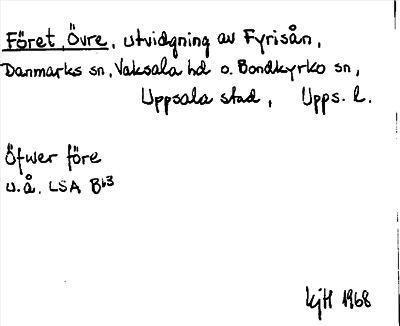 Föret, Övre, utvidgning av Fyrisån,
Danmarks sn, Vaksala hd o. Bondkyrko sn,
Uppsala stad, Upps. l.
Öfwer före
u.å. LSA B63
kjH 1968